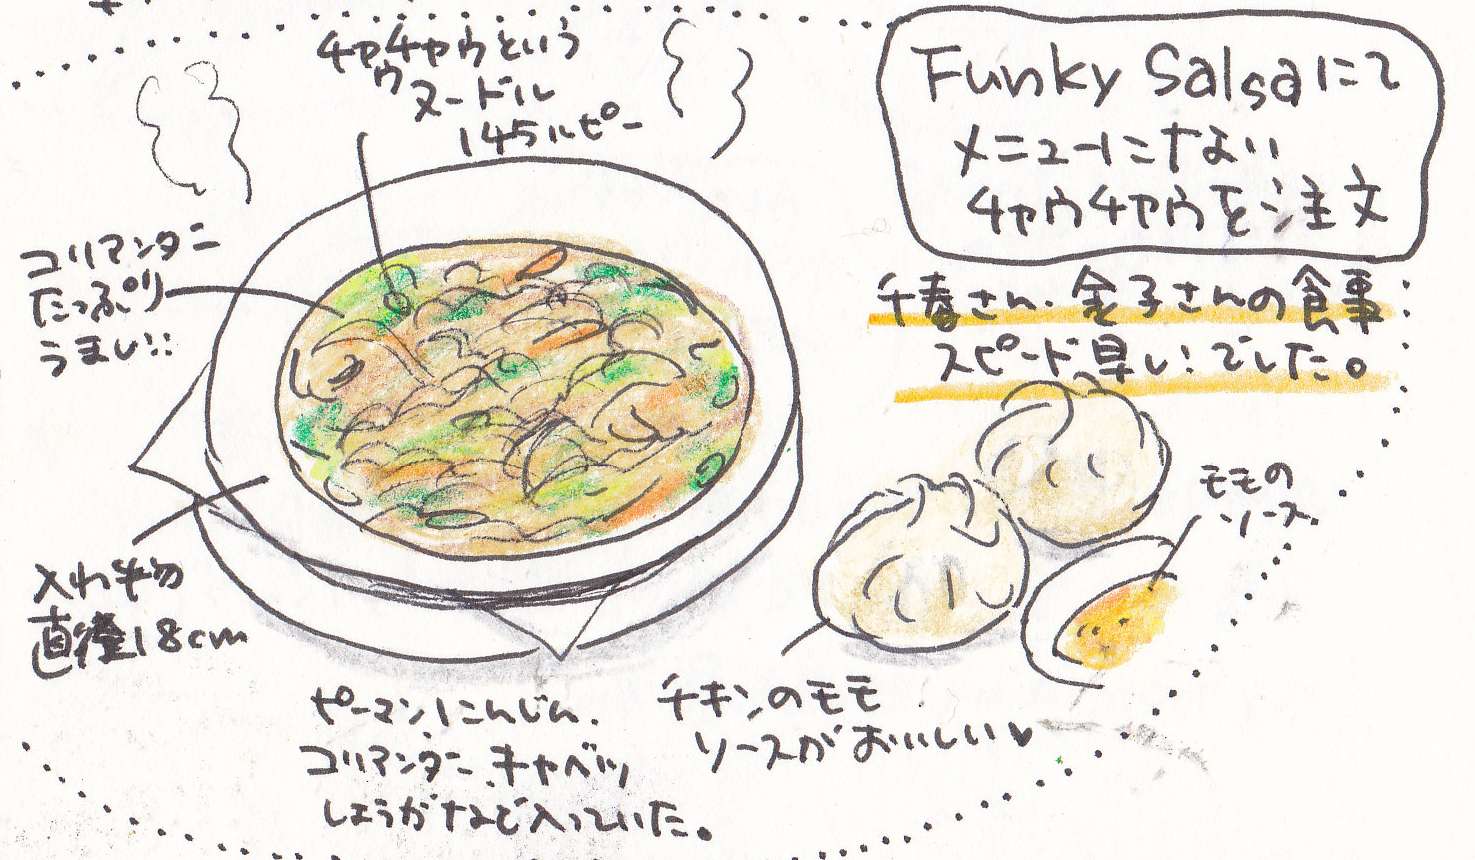 チャウチャウという
ヌードル
145ルピー
Funky Salsaにて
メニューにない
チャウチャウを注文
千春さん、金子さんの食事
スピード早い!でした。
コリアンダー
たっぷり
うまい!!
モモの
ソース
入れ物
直径18cm
ピーマン、にんじん、
コリアンダー、キャベツ
しょうがなど入っていた。
チキンのモモ
ソースがおいしい♥